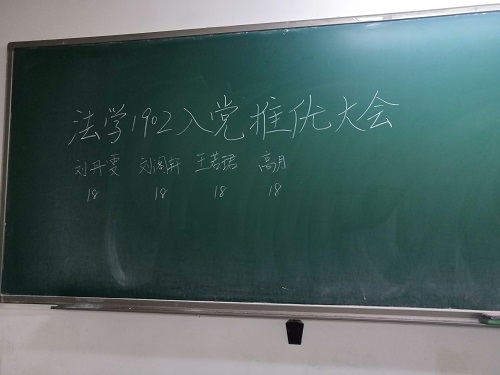 法学1902入党推优大会
刘丹雯 刘阅轩 王若珺 高月
18 18 18 18